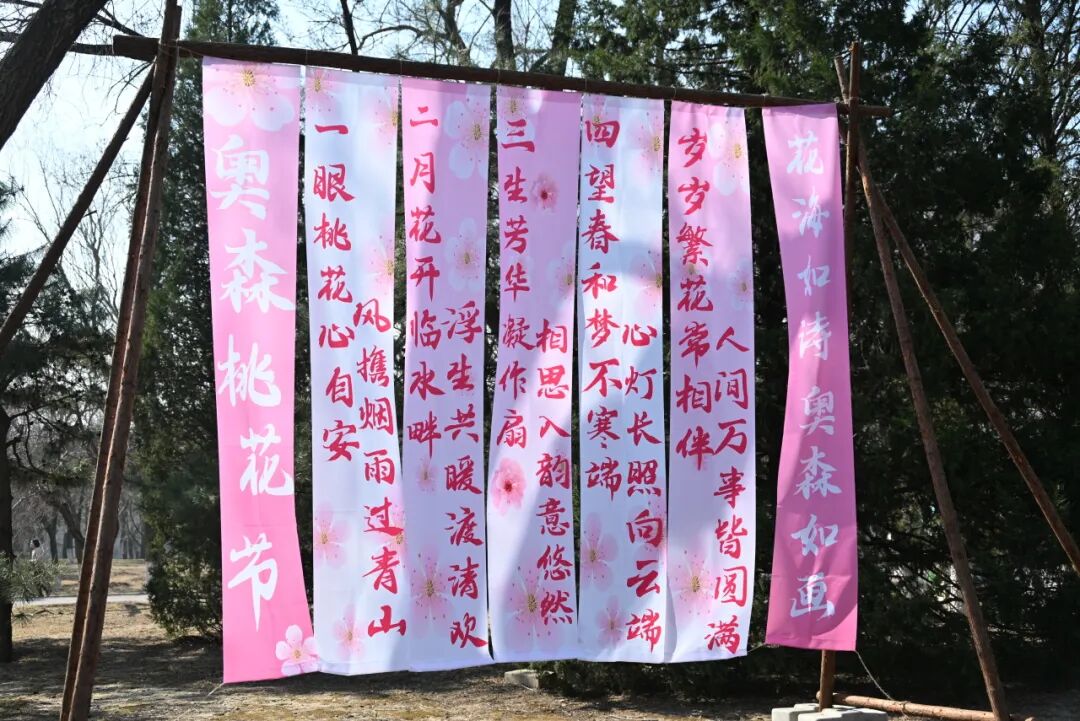 奥森桃花节
一眼桃花心自安
风携烟雨过青山
二月花开临水畔
浮生共暖渡清欢
三生芳华凝作扇
相思入韵意悠然
四望春和梦不寒端
心灯长照向云端
岁岁繁花常相伴
人间万事皆圆满
花海如诗奥森如画